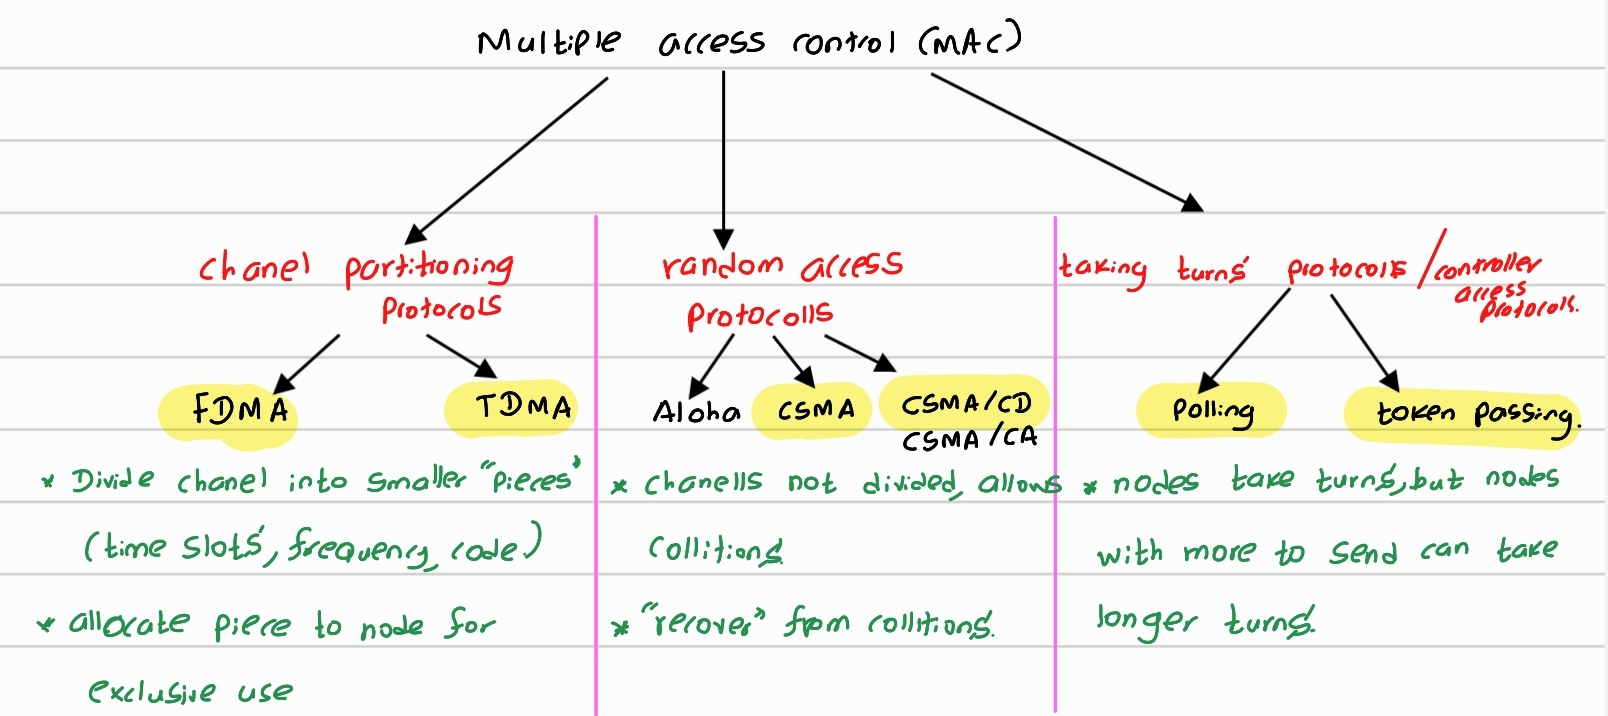 Multiple access control (MAC)
chanel partitioning
Protocols
FDMA
TDMA
* Divide chanel into smaller "pieces"
(time slots, frequency, code)
* allocate piece to node for
exclusive use
random access
Protocolls
Aloha
CSMA
CSMA/CD
CSMA/CA
* chanells not divided, allows
collitions.
* "recover" from collitions.
taking turns protocols / controller
access
protocols.
Polling
token passing.
* nodes take turns, but nodes
with more to send can take
longer turns.